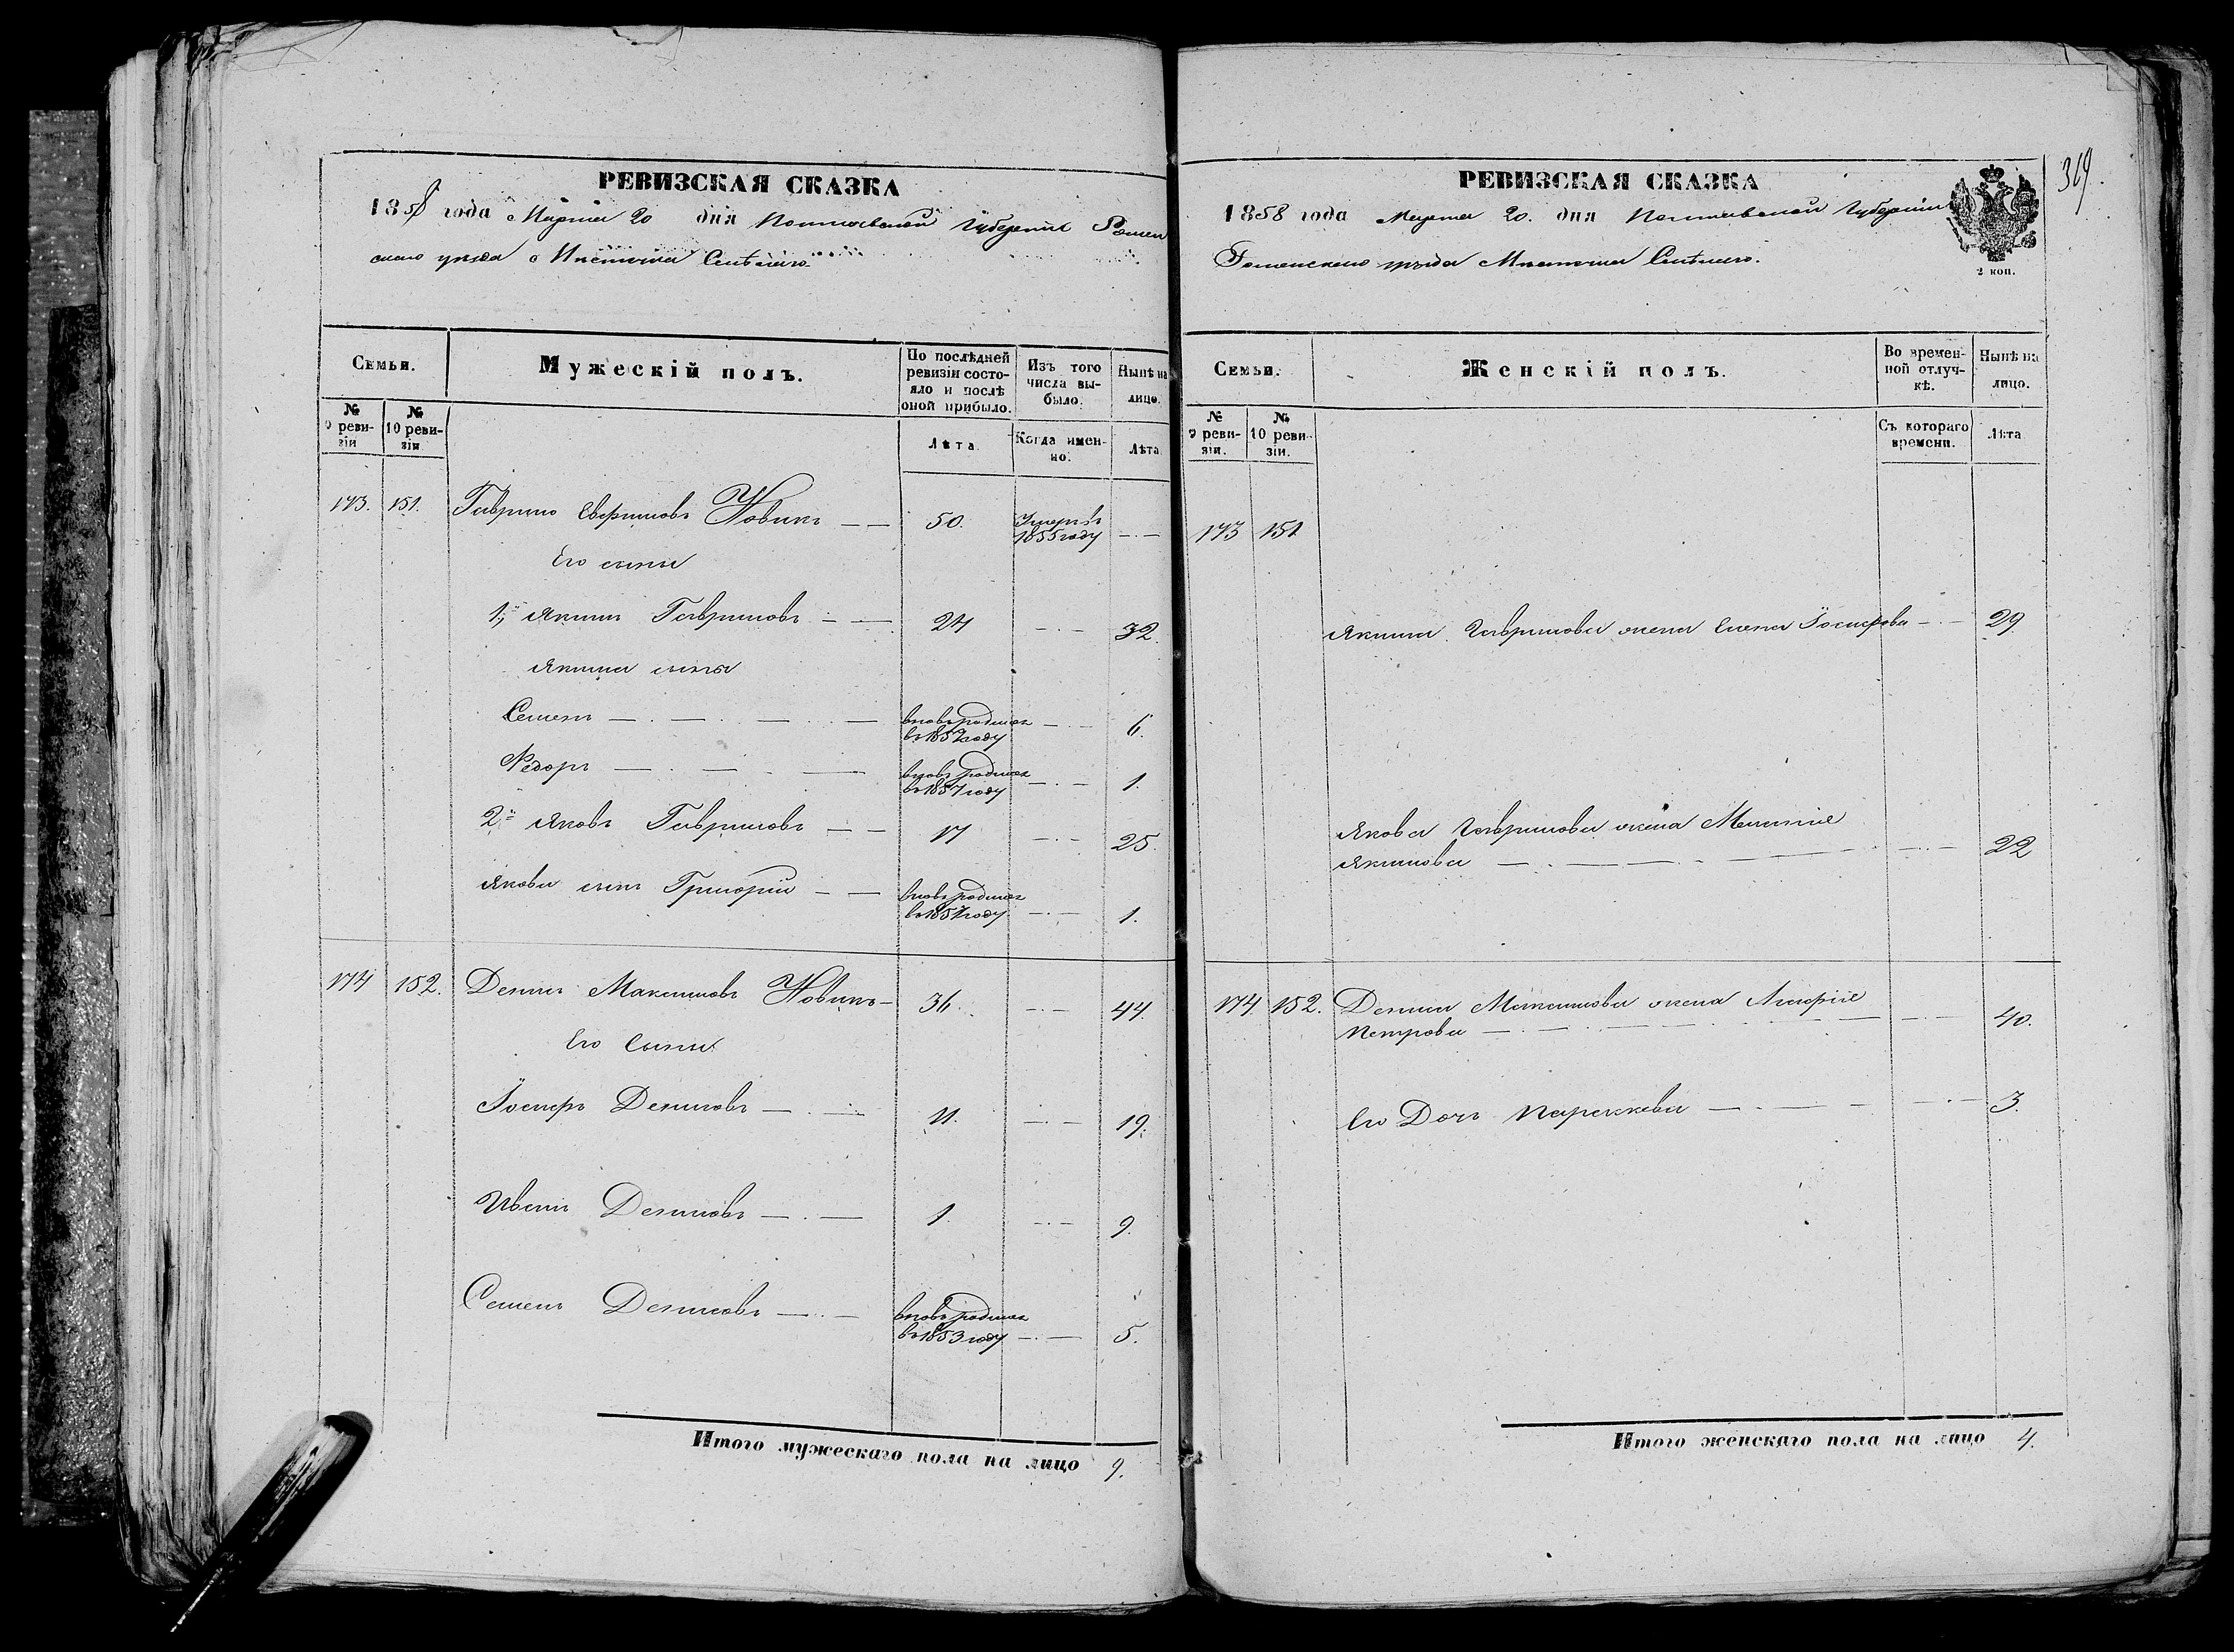 РЕВИЗСКАЯ СКАЗКА
1858 года Марта 20 дня Полтавской Губерніи Ромен
скаго уѣзда Мѣстечка
Семьи.
Мужескій полъ.
По послѣдней ревизіи состояло и послѣ оной прибыло.
Изъ того числа выбыло.
Нынѣ на лицо.
№ 9 ревизіи
№ 10 ревизіи
Лѣта
Когда именно.
Лѣта
173. 151. Гаврило Новикъ — — 50. Умеръ въ 1855 году —.—
Его сыны
1,й Якимъ Гавриловъ — — 24 —.— 32
Якима сыны
Семенъ —.—.—.— вновь родился въ 1852 году —.— 6.
Федоръ —.—.— вновь родился въ 1857 году —.— 1.
2,й Яковъ Гавриловъ — — 17 —.— 25.
Якова сынъ Григорій — — вновь родился въ 1857 году —.— 1.
174 152. Денисъ Максимовъ Новикъ — 36. —.— 44
Его Сыны
Іосифъ Денисовъ —.— 11. —.— 19.
Иванъ Денисовъ —.— 1. —.— 9.
Семенъ Денисовъ —.— вновь родился въ 1853 году —.— 5.
Итого мужескаго пола на лицо 9.
319.
РЕВИЗСКАЯ СКАЗКА
1858 года Марта 20. дня Полтавской Губерніи
Роменскаго уѣзда Мѣстечка
2 коп.
Семьи.
Женскій полъ.
Во временной отлучкѣ.
Нынѣ на лицо.
№ 9 ревизіи.
№ 10 ревизіи.
Съ котораго времени.
Лѣта
173 151
Якима Гаврилова жена Елена Іосифова —.— 29.
Якова Гаврилова жена Меланія
Якимова —.—.—.— 22
174 152. Дениса Максимова жена Гликерія
Петрова —.—.—.— 40.
Его Дочь Параскева —.—.— 3.
Итого женскаго пола на лицо 4.